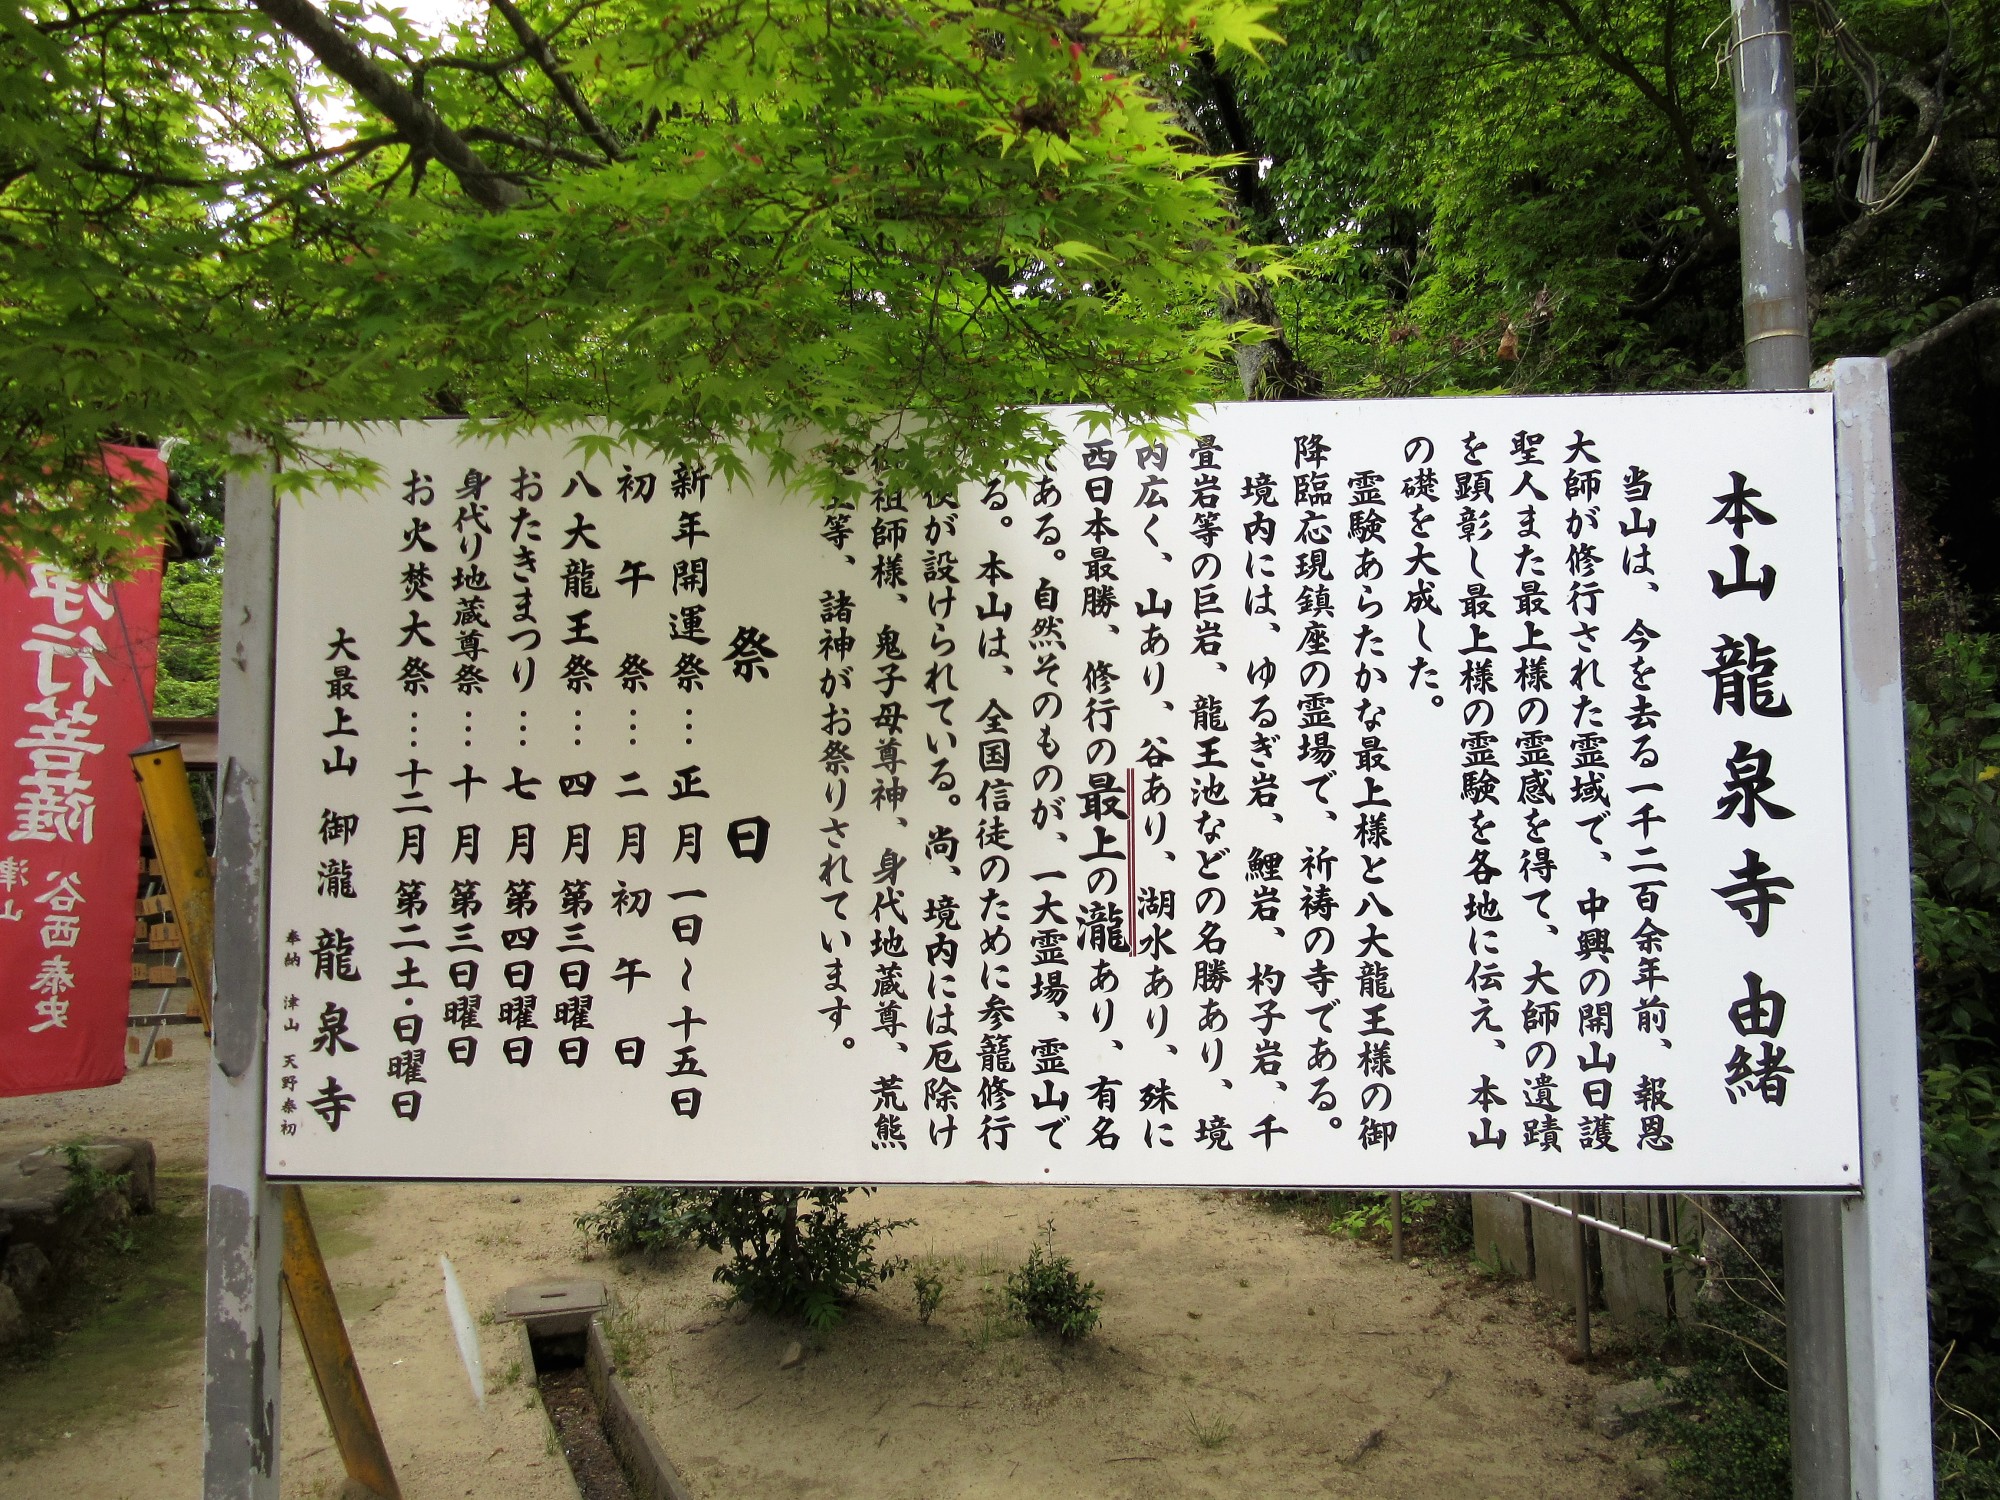 本山龍泉寺由緒
当山は、今を去る一千二百余年前、報恩
大師が修行された霊域で、中興の開山日護
聖人また最上様の霊感を得て、大師の遺蹟
を顕彰し最上様の霊験を各地に伝え、本山
の礎を大成した。
霊験あらたかな最上様と八大龍王様の御
降臨応現鎮座の霊場で、祈祷の寺である。
境内には、ゆるぎ岩、鯉岩、杓子岩、千
畳岩等の巨岩、龍王池などの名勝あり、境
内広く、山あり、谷あり、湖水あり、殊に
西日本最勝、修行の最上の瀧あり、有名
である。自然そのものが、一大霊場、霊山で
る。本山は、全国信徒のために参籠修行
が設けられている。尚、境内には厄除け
祖師様、鬼子母尊神、身代地蔵尊、荒熊
等、諸神がお祭りされています。
祭日
新年開運祭…正月一日～十五日
初午祭…二月初午日
八大龍王祭…四月第三日曜日
おたきまつり…七月第四日曜日
身代り地蔵尊祭…十月第三日曜日
お火焚大祭…十二月第二土・日曜日
大最上山御瀧龍泉寺
奉納 津山 天野泰初
浄行菩薩
津山
谷西泰史